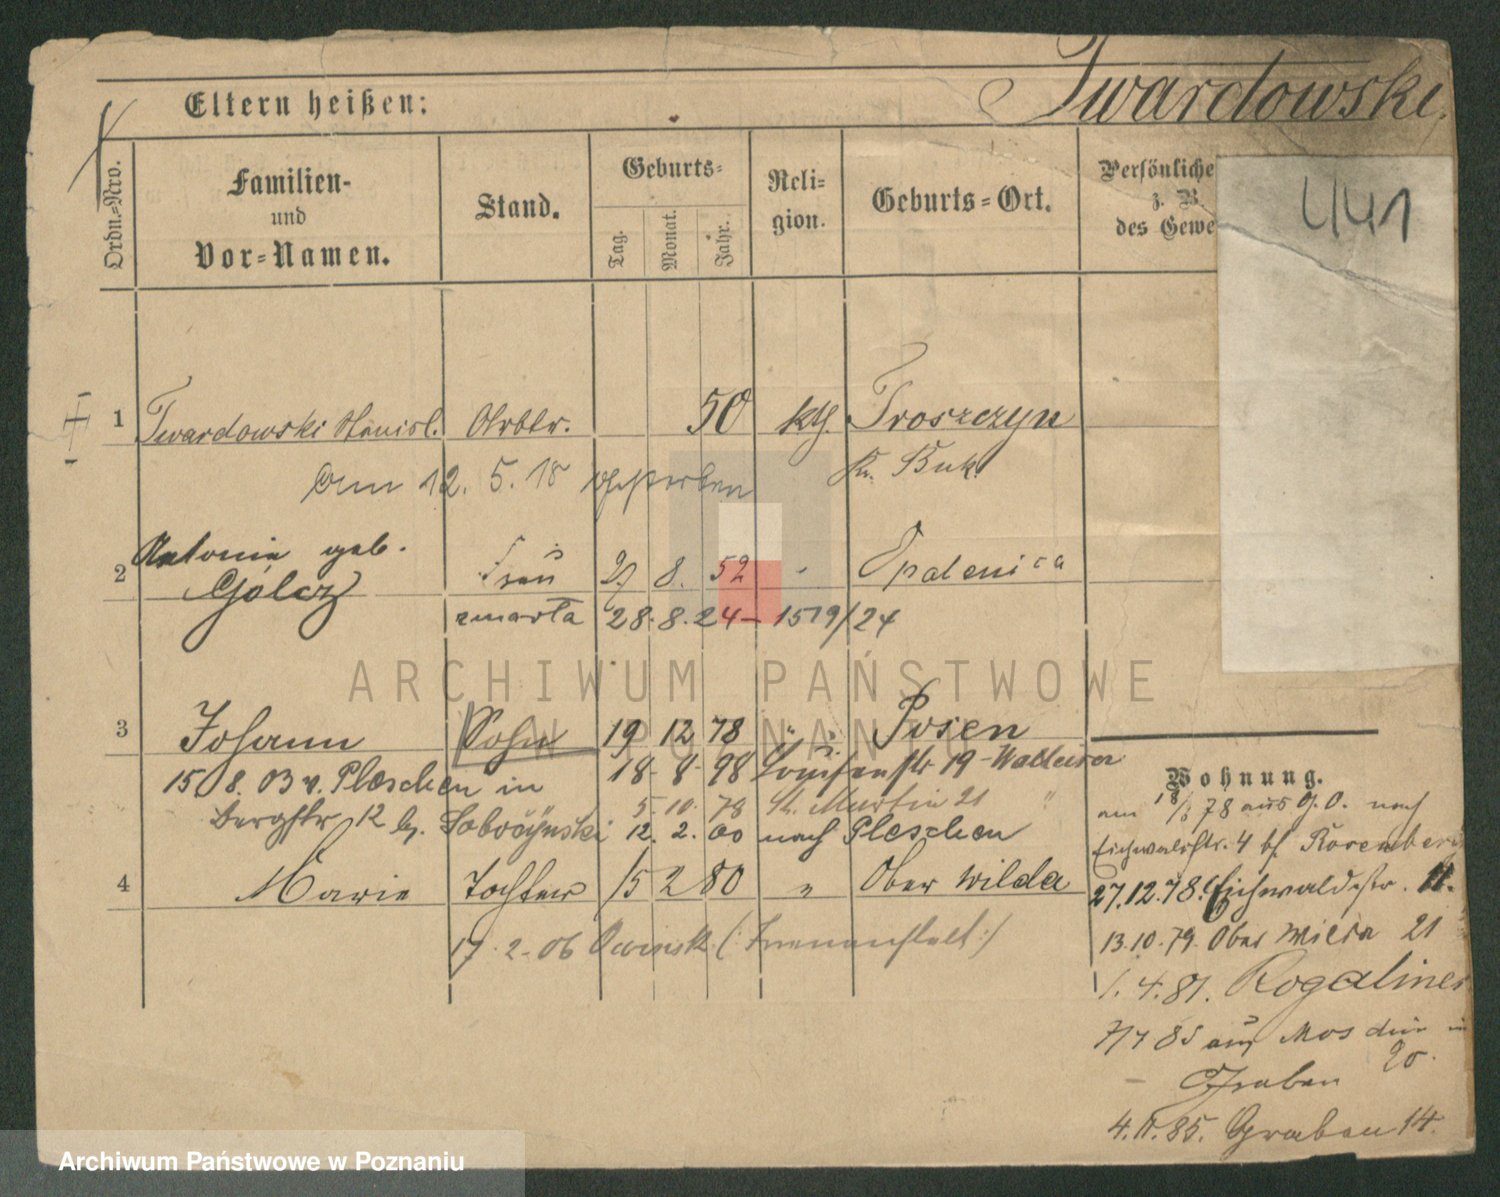 Twardowski.
Eltern heißen:
441
Ordn.-Nro.
Familien-
und
Vor-Namen.
Stand.
Geburts-
Tag.
Monat.
Jahr.
Reli-
gion.
Geburts-Ort.
Persönliche
z. B.
des Gewe
1 Twardowski Stanisl. Arbtr. 50 kth. Troszczyn
Kr. Buk.
Am 12. 5. 18 verstorben
2 Antonie geb. Frau 27 8. 52 Opalenica
Gólcz
zmarła 28. 8. 24 - 1519/24
3 Johann Sohn 19 12 78 " Posen
15 8. 03 v. Pleschen in 18 8 98 Louisenstr 19
Bergstr 12 b. 5. 10. 78 St. Martin 21
12. 2. 00 nach Pleschen
4 Marie Tochter 15 2 80 " Ober Wilda
17. 2. 06 Owinsk (: Irrenanstalt :)
Wohnung.
am 78 aus G. O. nach
Eichwaldstr. 4 bf Rosenberg
27.12.78. Eichwaldstr. 11.
13.10.79. Ober Wilda 21
1. 4. 81. Rogaliner
7/7 85 aus in
Graben 20.
4. 11. 85. Graben 14.
ARCHIWUM PAŃSTWOWE
W POZNANIU
Archiwum Państwowe w Poznaniu